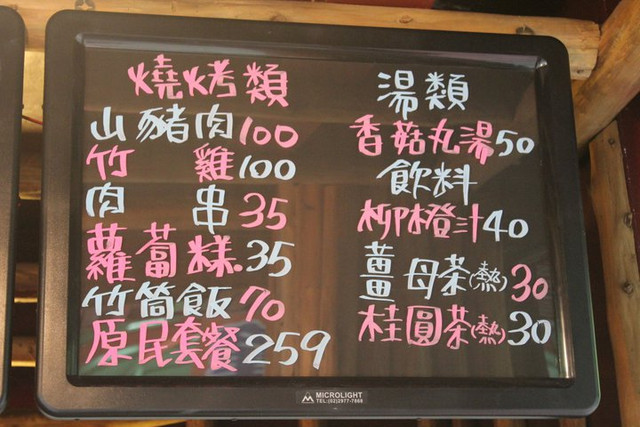 燒烤類
山豬肉100
竹雞100
肉串35
蘿蔔糕.35
竹筒飯70
原民套餐259
湯類
香菇丸湯50
飲料
柳橙汁40
薑母茶(熱)30
桂圓茶(熱)30
MICROLIGHT
TEL:(02)2977-7668